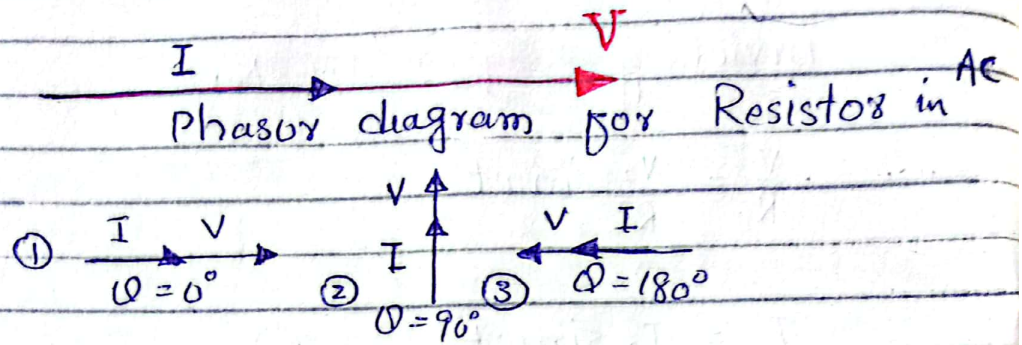 I V
Phasor diagram for Resistor in AC
① I V
θ = 0°
② V
I
θ = 90°
③ V I
θ = 180°